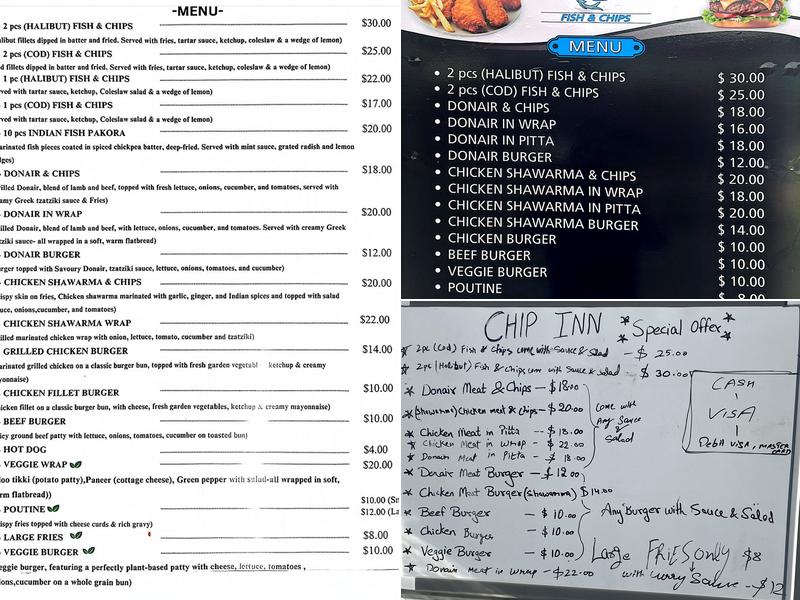 -MENU-
2 pcs (HALIBUT) FISH & CHIPS $30.00
fillets dipped in batter and fried. Served with fries, tartar sauce, ketchup, coleslaw & a wedge of lemon)
2 pcs (COD) FISH & CHIPS $25.00
fillets dipped in batter and fried. Served with fries, tartar sauce, ketchup, coleslaw & a wedge of lemon)
1 pc (HALIBUT) FISH & CHIPS $22.00
with tartar sauce, ketchup, Coleslaw salad & a wedge of lemon)
1 pcs (COD) FISH & CHIPS $17.00
with tartar sauce, ketchup, Coleslaw salad & a wedge of lemon)
10 pcs INDIAN FISH PAKORA $20.00
fish pieces coated in spiced chickpea batter, deep-fried. Served with mint sauce, grated radish and lemon
DONAIR & CHIPS $18.00
Donair, blend of lamb and beef, topped with fresh lettuce, onions, cucumber, and tomatoes, served with
Greek tzatziki sauce & Fries)
DONAIR IN WRAP $20.00
Donair, blend of lamb and beef, with lettuce, onions, cucumber, and tomatoes. Served with creamy Greek
sauce- all wrapped in a soft, warm flatbread)
DONAIR BURGER $12.00
topped with Savoury Donair, tzatziki sauce, lettuce, onions, tomatoes, and cucumber)
CHICKEN SHAWARMA & CHIPS $20.00
skin on fries, Chicken shawarma marinated with garlic, ginger, and Indian spices and topped with salad
onions,cucumber, and tomatoes)
CHICKEN SHAWARMA WRAP $22.00
marinated chicken wrap with onion, lettuce, tomato, cucumber and tzatziki)
GRILLED CHICKEN BURGER $14.00
grilled chicken on a classic burger bun, topped with fresh garden ketchup & creamy
CHICKEN FILLET BURGER $10.00
fillet on a classic burger bun, with cheese, fresh garden vegetables, ketchup & creamy mayonnaise)
BEEF BURGER $10.00
ground beef patty with lettuce, onions, tomatoes, cucumber on toasted bun)
HOT DOG $4.00
VEGGIE WRAP $20.00
tikki (potato patty),Paneer (cottage cheese), Green pepper with salad-all wrapped in soft,
flatbread))
$10.00
POUTINE $12.00
fries topped with cheese curds & rich gravy)
LARGE FRIES $8.00
VEGGIE BURGER $10.00
burger, featuring a perfectly plant-based patty with cheese, lettuce, tomatoes ,
on a whole grain bun)
FISH & CHIPS
MENU
• 2 pcs (HALIBUT) FISH & CHIPS $ 30.00
• 2 pcs (COD) FISH & CHIPS $ 25.00
• DONAIR & CHIPS $ 18.00
• DONAIR IN WRAP $ 16.00
• DONAIR IN PITTA $ 18.00
• DONAIR BURGER $ 12.00
• CHICKEN SHAWARMA & CHIPS $ 20.00
• CHICKEN SHAWARMA IN WRAP $ 18.00
• CHICKEN SHAWARMA IN PITTA $ 20.00
• CHICKEN SHAWARMA BURGER $ 14.00
• CHICKEN BURGER $ 10.00
• BEEF BURGER $ 10.00
• VEGGIE BURGER $ 10.00
• POUTINE $ 10.00
$ 8.00
CHIP INN * Special Offer *
* 2pc (Cod) Fish & Chips come with Sauce & Salad - $ 25.00
* 2pc (Halibut) Fish & Chips come with Sauce & salad - $ 30.00
* Donair Meat & Chips - $18.00
* (Shawarma) Chicken meat & chips - $20.00
* Chicken Meat in Pitta - $ 18.00
* Chicken Meat in Wrap - $ 22.00
* Donair Meat in Pitta - $ 18.00
Come with Any Sauce & Salad
* Donair Meat Burger - $ 12.00
* Chicken Meat Burger (Shawarma) $14.00
* Beef Burger - $ 10.00
* Chicken Burger - $ 10.00
* Veggie Burger - $ 10.00
Any Burger with Sauce & Salad
* Donair meat in wrap - $22.00
Large FRIES only $8
with curry Sauce - $12
CASH
VISA
Debit VISA, MASTER CARD